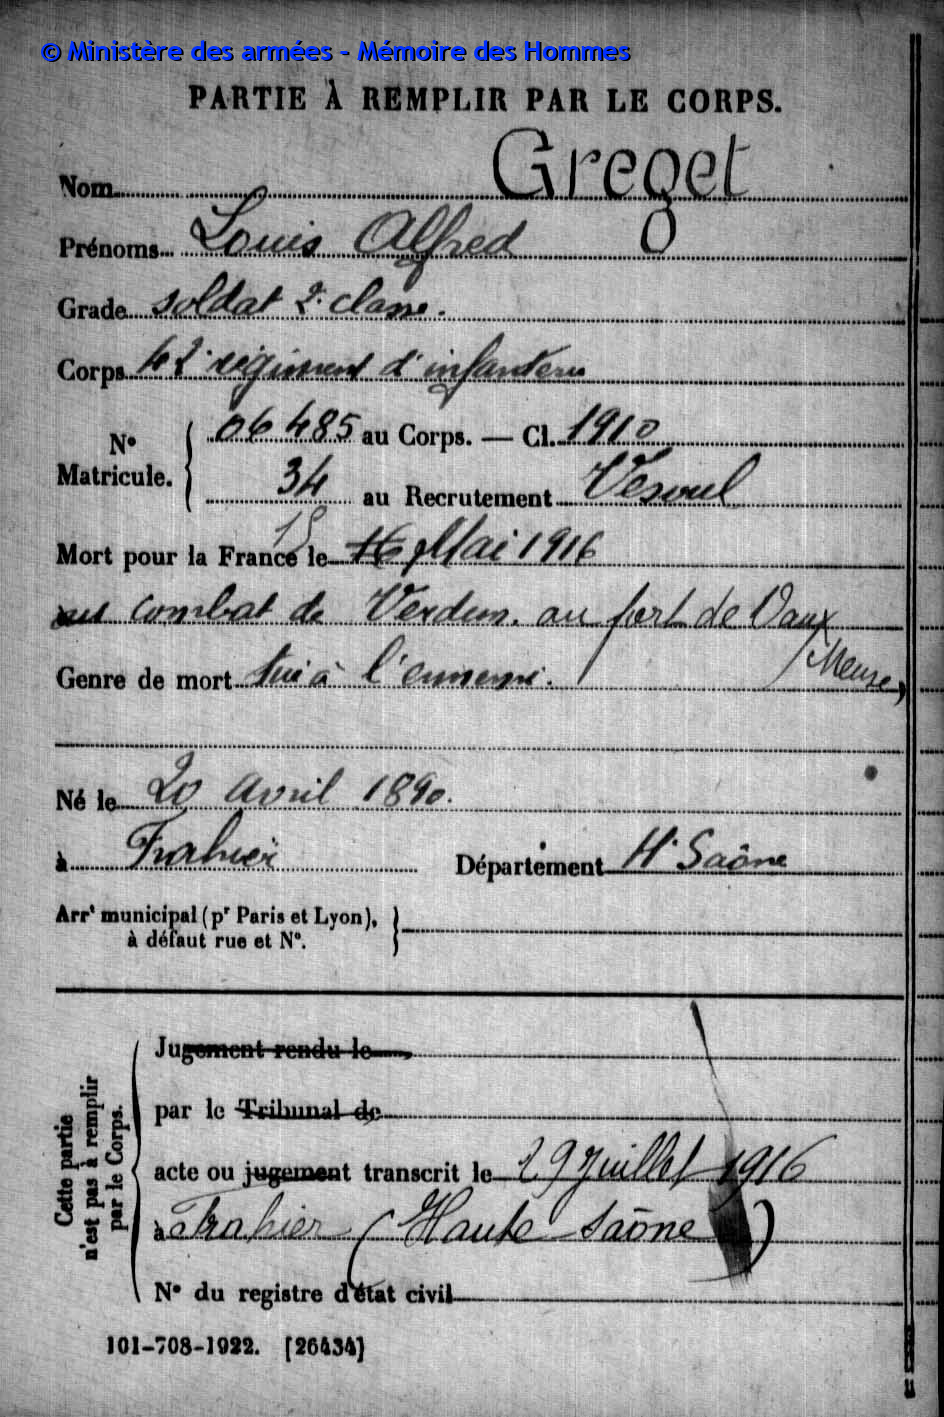 © Ministère des armées - Mémoire des Hommes
PARTIE À REMPLIR PAR LE CORPS.
Nom Greget
Prénoms Louis Alfred
Grade soldat 2e classe.
Corps 42e régiment d'infanterie
N° Matricule. { 06485 au Corps. — Cl. 1910
34 au Recrutement Vesoul
15
Mort pour la France le 16 Mai 1916
au combat de Verdun. au fort de Vaux
(Meuse)
Genre de mort tué à l'ennemi.
Né le 20 avril 1890.
à Frahier Département Hte Saône
Arrt municipal (pr Paris et Lyon),
à défaut rue et N°.
Cette partie
n'est pas à remplir
par le Corps.
Jugement rendu le
par le Tribunal de
acte ou jugement transcrit le 29 juillet 1916
à Frahier (Haute Saône)
N° du registre d'état civil
101-708-1922. [26434]